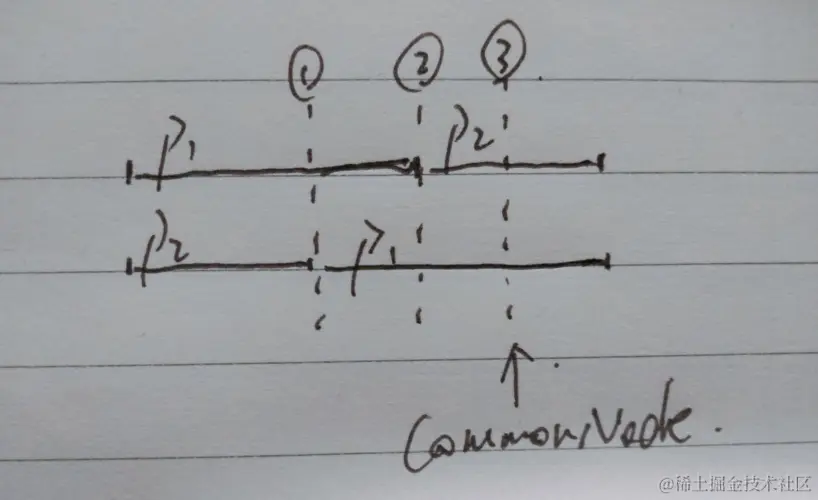 ① ② ③
P1 P2
P2 P1
CommonNode.
@稀土掘金技术社区